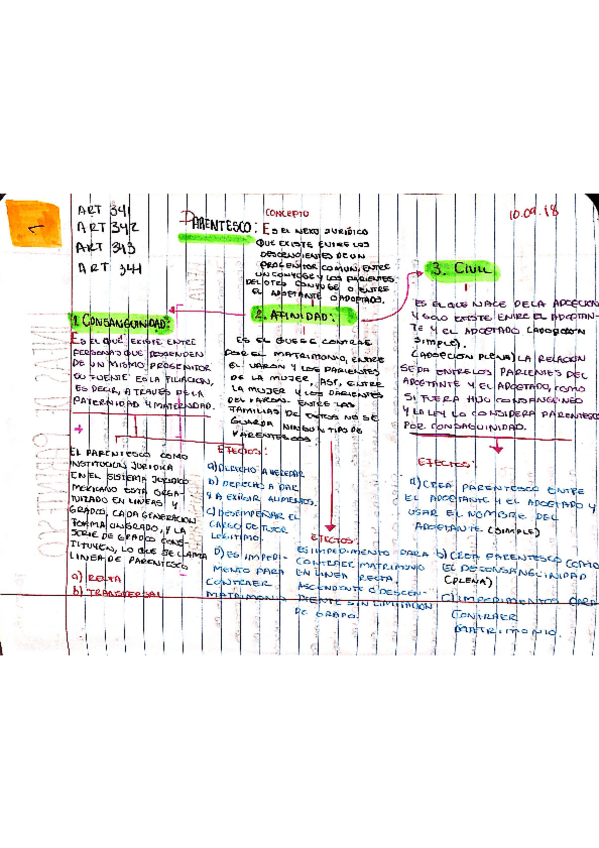 1
ART 341
ART 342
ART 343
ART 344
CONCEPTO
10.09.18
PARENTESCO: ES EL NEXO JURÍDICO
QUE EXISTE ENTRE LOS
DESCENDIENTES DE UN
PROGENITOR COMUN, ENTRE
UN CONYUGE Y LOS PARIENTES
DEL OTRO CONYUGE O ENTRE
EL ADOPTANTE O ADOPTADO.
1 CONSANGUINIDAD:
ES EL QUE EXISTE ENTRE
PERSONAS QUE DESCIENDEN
DE UN MISMO PROGENITOR
SU FUENTE ES LA FILIACIÓN,
ES DECIR, A TRAVES DE LA
PATERNIDAD Y MATERNIDAD.
EL PARENTESCO COMO
INSTITUCION JURIDICA
EN EL SISTEMA JURIDICO
MEXICANO ESTA ORGA-
NIZADO EN LINEAS Y
GRADOS, CADA GENERACION
FORMA UN GRADO, Y LA
SERIE DE GRADOS CONS-
TITUYEN, LO QUE SE LLAMA
LINEA DE PARENTESCO
a) RECTA
b) TRANSVERSAL
EFECTOS:
a) DERECHO A HEREDAR
b) DERECHO A DAR
Y A EXIGIR ALIMENTOS.
c) DESEMPEÑAR EL
CARGO DE TUTOR
LEGITIMO.
D) ES IMPEDI-
MENTO PARA
CONTRAER
MATRIMONIO
2. AFINIDAD:
ES EL QUE SE CONTRAE
POR EL MATRIMONIO, ENTRE
EL VARON Y LOS PARIENTES
DE LA MUJER, ASI, ENTRE
LA MUJER Y LOS PARIENTES
DEL VARON. ENTRE LAS
FAMILIAS DE ESTOS NO SE
GUARDA NINGUN TIPO DE
PARENTESCO.
EFECTOS:
ES IMPEDIMENTO PARA
CONTRAER MATRIMONIO
EN LINEA RECTA.
ASCENDIENTE O DESCEN-
DIENTE SIN LIMITACION
DE GRADO.
3. CIVIL
ES EL QUE NACE DE LA ADOPCION
Y SOLO EXISTE ENTRE EL ADOPTAN-
TE Y EL ADOPTADO (ADOPCION
SIMPLE).
(ADOPCION PLENA) LA RELACION
SE DA ENTRE LOS PARIENTES DEL
ADOPTANTE Y EL ADOPTADO, COMO
SI FUERA HIJO CONSANGUINEO
Y LA LEY LO CONSIDERA PARENTESCO
POR CONSAGUINIDAD.
EFECTOS:
a) CREA PARENTESCO ENTRE
EL ADOPTANTE Y EL ADOPTADO Y
USAR EL NOMBRE DEL
ADOPTANTE. (SIMPLE)
b) CREA PARENTESCO COMO
EL DE CONSANGUINIDAD
(PLENA)
C) IMPEDIMENTOS PARA
CONTRAER
MATRIMONIO.